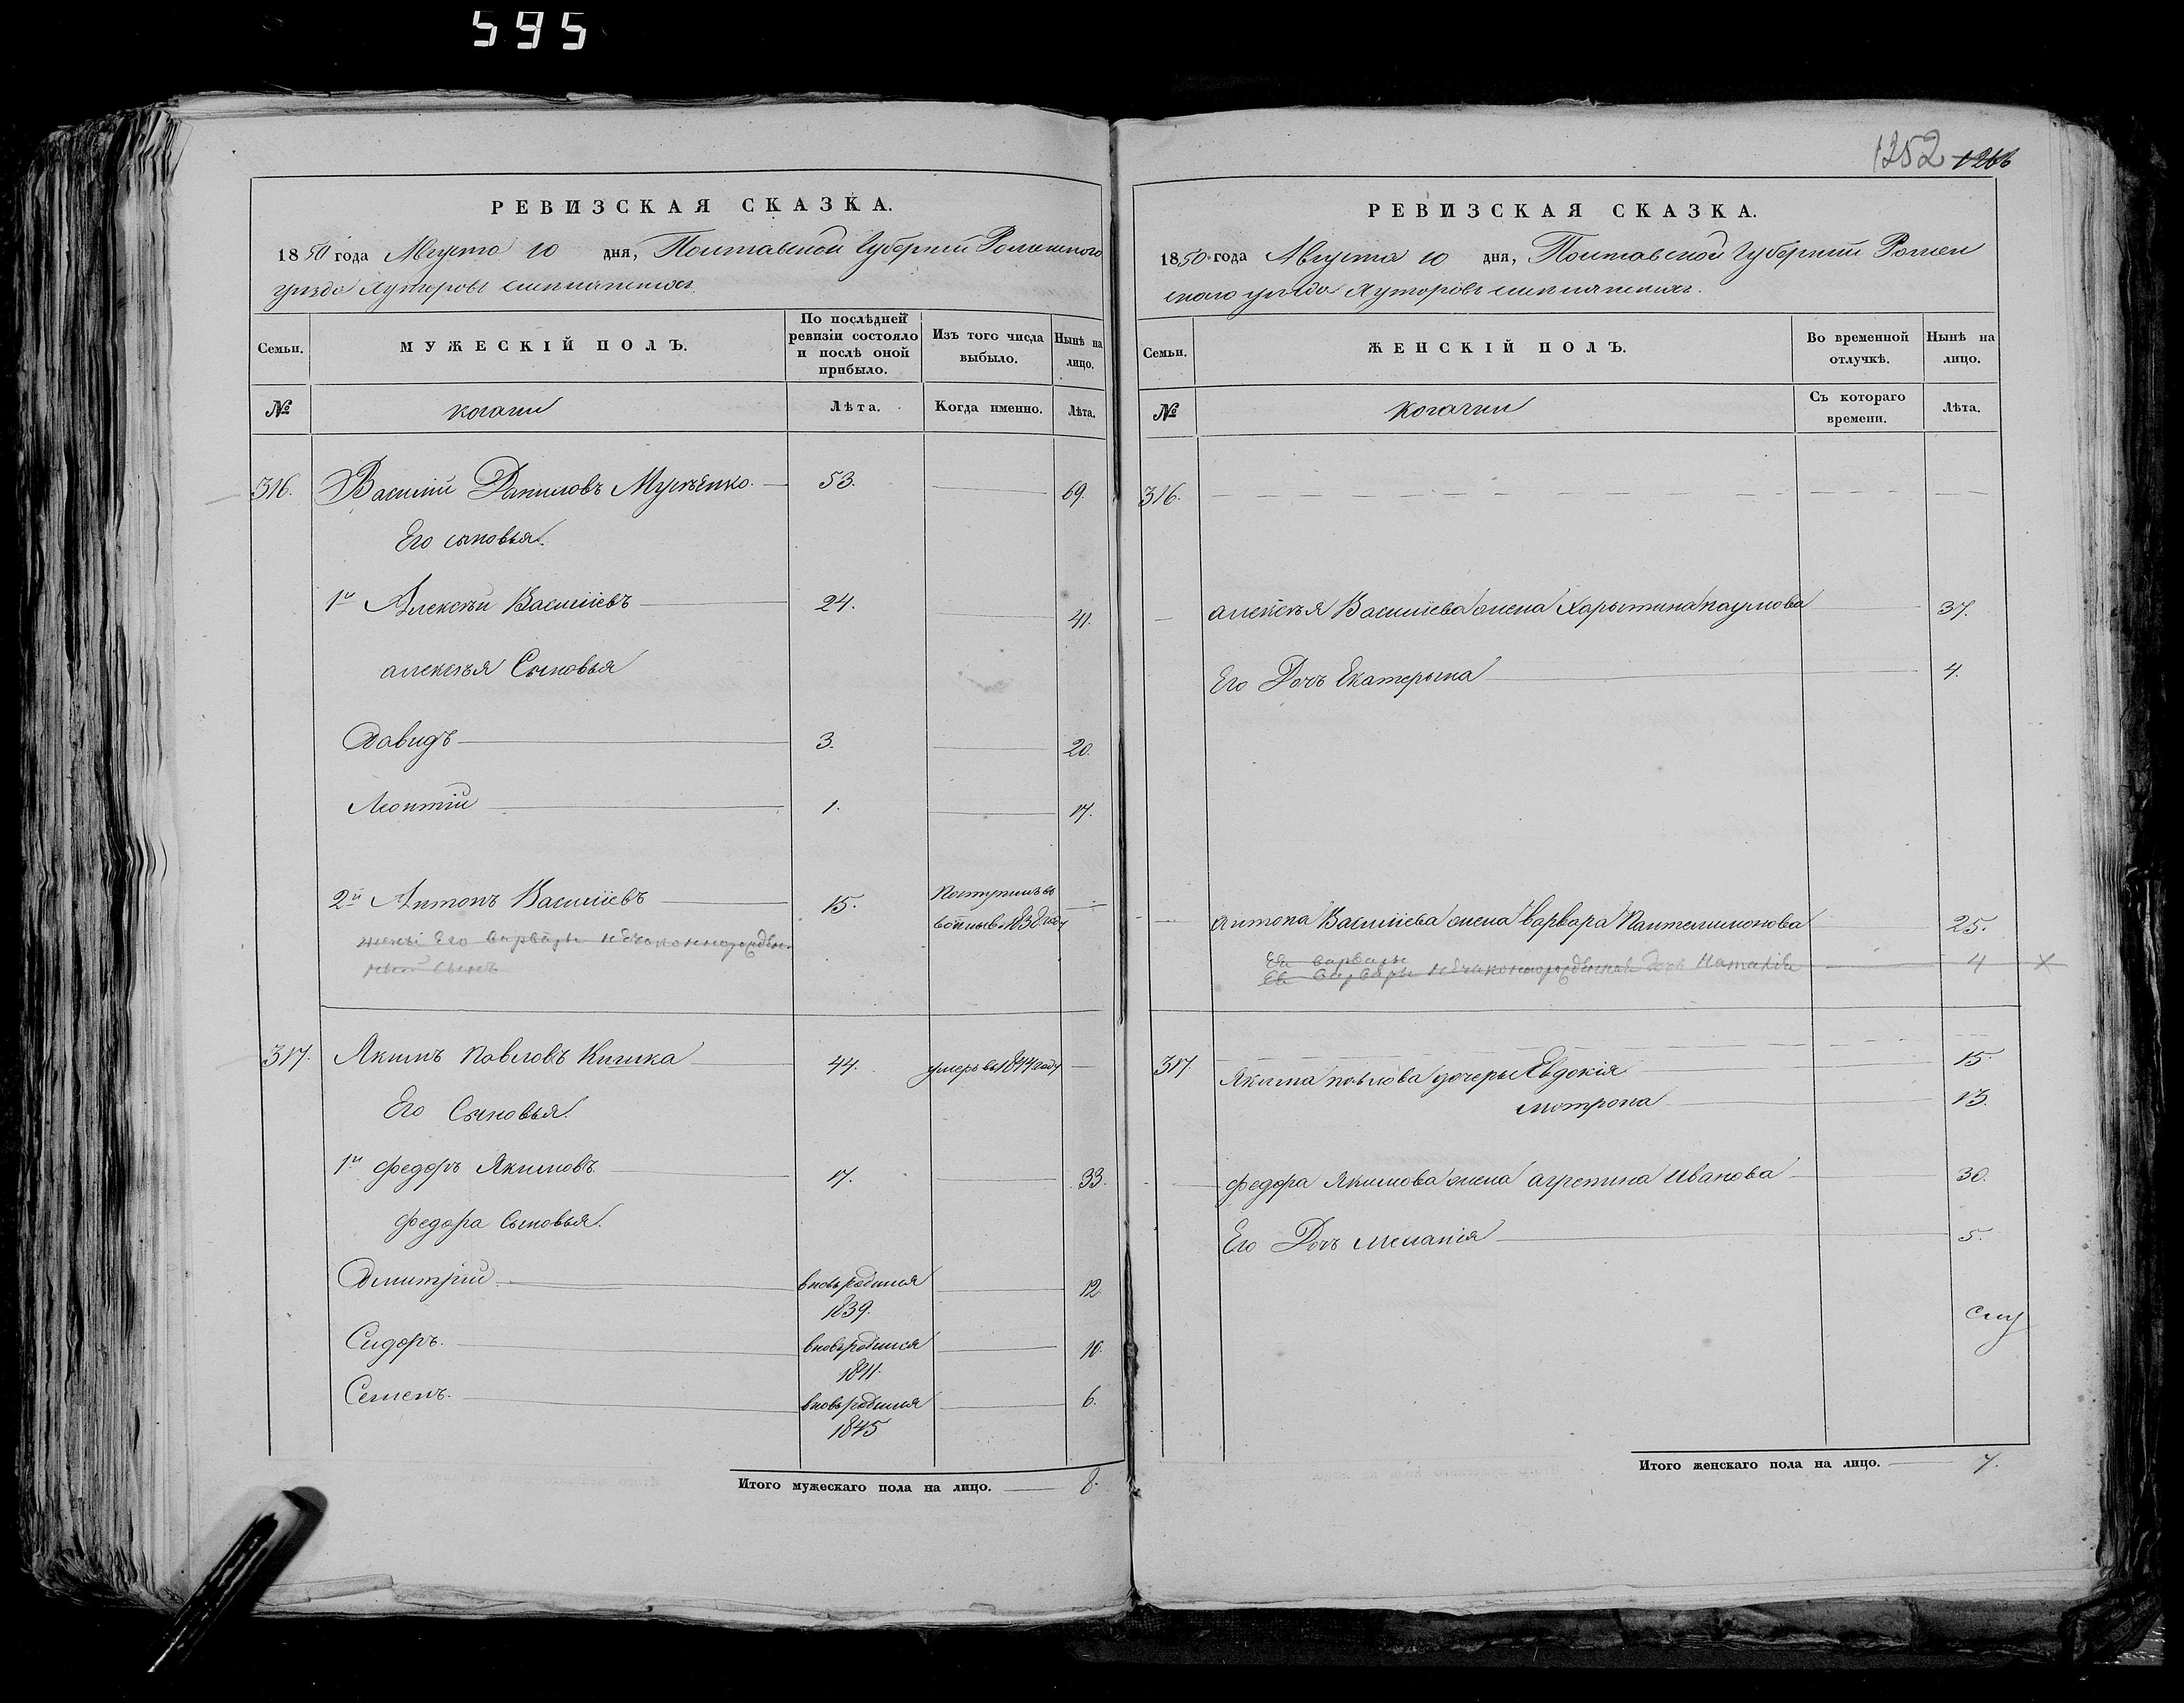 595
1252 1266
РЕВИЗСКАЯ СКАЗКА.
1850 года Августа 10 дня, Полтавской Губерніи Роменского
уезда Хуторовъ
Семьи.
МУЖЕСКІЙ ПОЛЪ.
По послѣдней ревизіи состояло и послѣ оной прибыло.
Изъ того числа выбыло.
Нынѣ на лицо.
№
козаки
Лѣта.
Когда именно.
Лѣта.
316. Василій Даниловъ 53. 69.
Его сыновья.
1й Алексѣй Василіевъ 24. 41.
алексѣя Сыновья
Давидъ 3. 20.
Леонтій 1. 17.
2й Антонъ Василіевъ 15. Поступилъ въ
1838 году
жены Его Варвары незаконнорожден
ный сынъ
317. Якимъ Павловъ Кишка 44. умеръ въ 1844 году
Его Сыновья.
1й Федоръ Якимовъ 17. 33.
Федора Сыновья.
Дмитрій вновь родился 12.
1839.
Сидоръ. вновь родился 10.
1841.
Семенъ. вновь родился 6.
1845
Итого мужескаго пола на лицо. 8.
РЕВИЗСКАЯ СКАЗКА.
1850 года Августа 10 дня, Полтавской Губерніи Ромен
ского уѣзда Хуторовъ
Семьи.
ЖЕНСКІЙ ПОЛЪ.
Во временной отлучкѣ.
Нынѣ на лицо.
№
козачки
Съ котораго времени.
Лѣта.
316.
алексѣя Василіева жена Харытина наумова 37.
Его Дочь Екатерына 4.
Антона Василіева жена варвара Пантелимонова 25.
Ея варвары
Ея варвары незаконнорожденная дочь Наталія 4 ×
317.
Якима павлова дочеры Явдокія 15.
мотрона 13.
федора Якимова жена агрепина Иванова 30.
Его Дочь меланія 5.
Итого женскаго пола на лицо. 7.